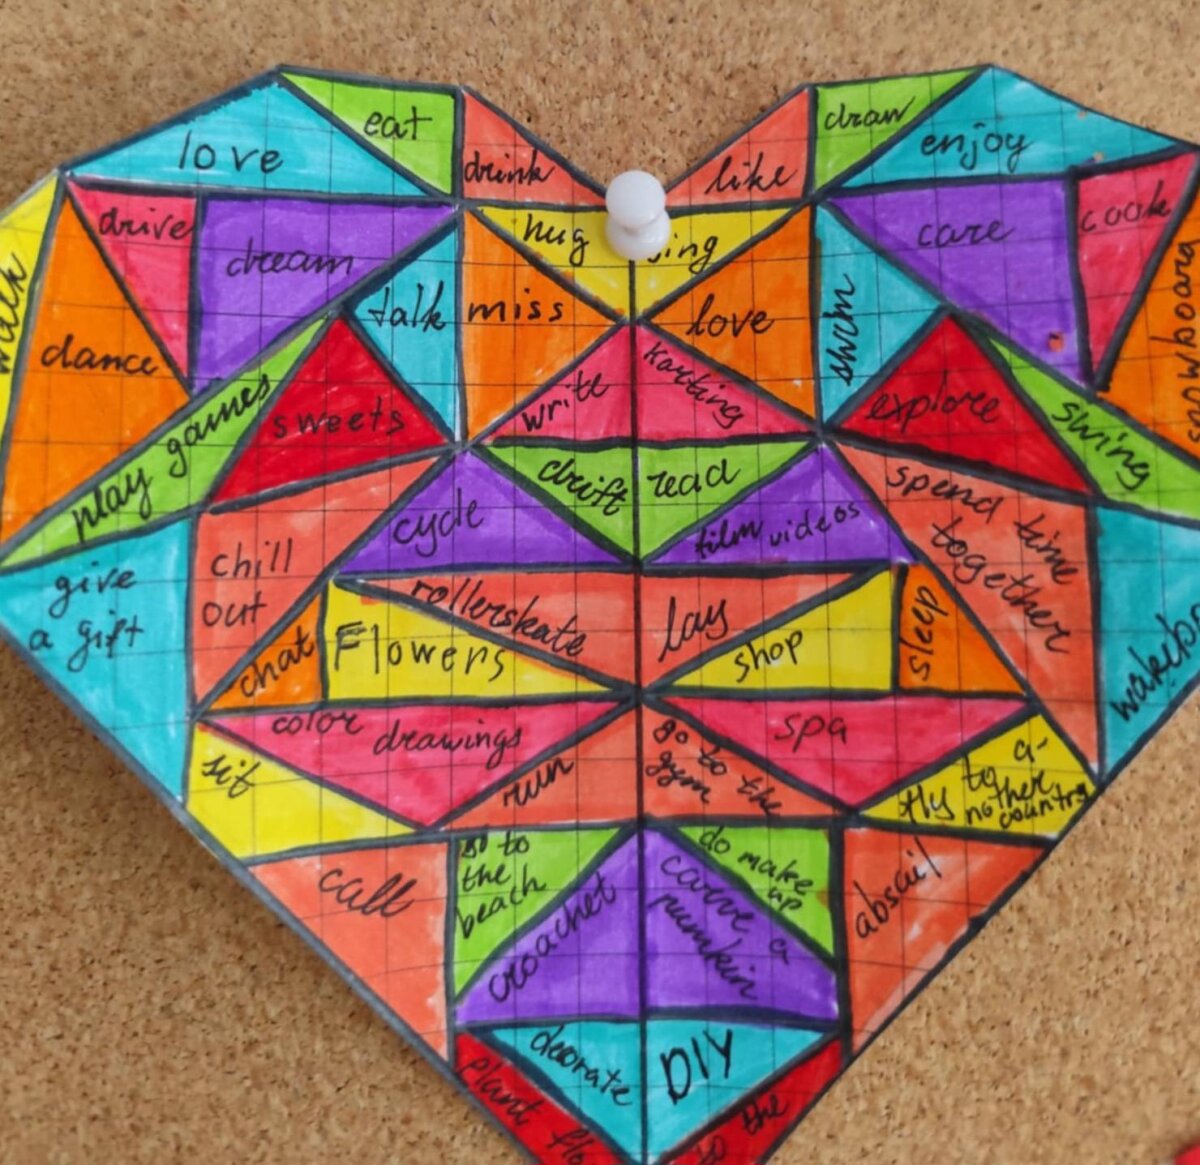 eat
draw
love
enjoy
drink
like
drive
dream
hug
care
cook
talk
miss
love
swim
dance
snowboard
write
karting
play games
sweets
explore
swing
drift
read
cycle
film videos
spend time
together
chill
out
give
a gift
rollerskate
lay
chat
Flowers
shop
sleep
color drawings
spa
sit
run
go to the
gym
fly to a-
nother
country
call
go to
the
beach
do make
up
croachet
carve a
pumkin
absail
decorate
DIY
plant
to the